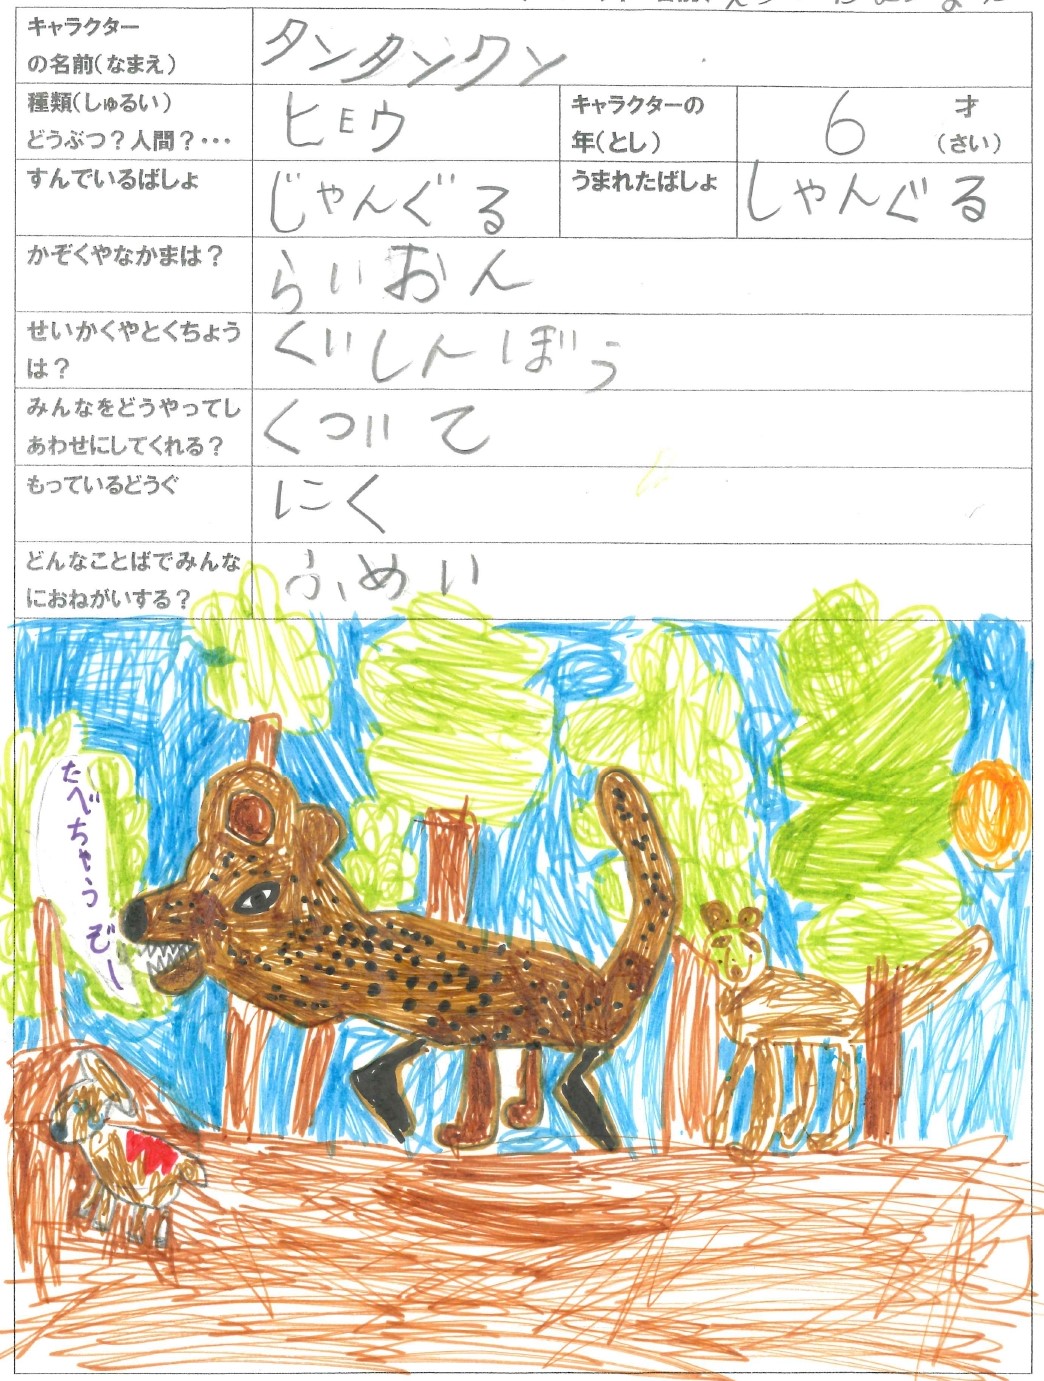 キャラクター
の名前(なまえ)
タンタンクン
種類(しゅるい)
どうぶつ?人間?・・・
ヒョウ
キャラクターの
年(とし)
6
才
(さい)
すんでいるばしょ
じゃんぐる
うまれたばしょ
しゃんぐる
かぞくやなかまは?
らいおん
せいかくやとくちょう
は?
くいしんぼう
みんなをどうやってし
あわせにしてくれる?
くついて
もっているどうぐ
にく
どんなことばでみんな
におねがいする?
ふめい
たべちゃうぞー